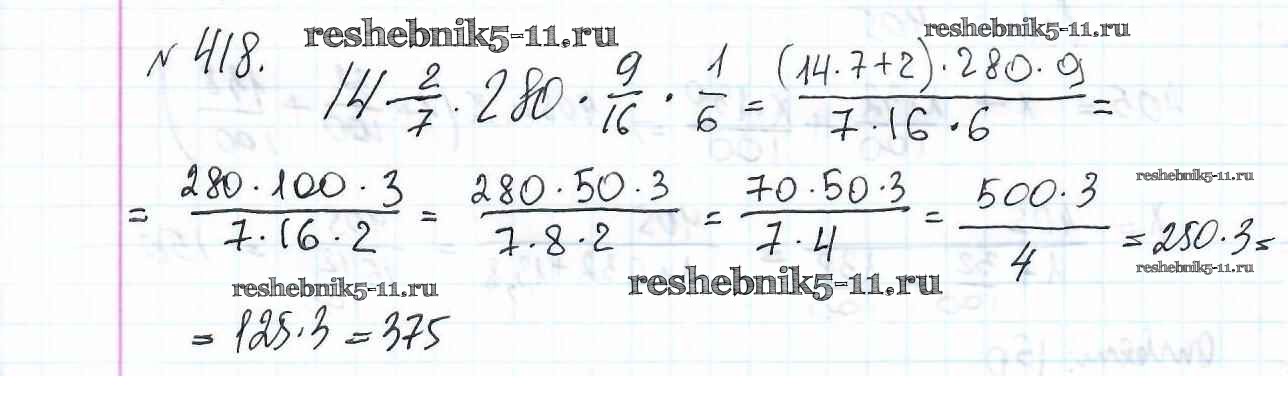 № 418. reshebnik5-11.ru reshebnik5-11.ru
14 2/7 · 280 · 9/16 · 1/6 = (14·7+2)·280·9 / 7·16·6 =
= 280·100·3 / 7·16·2 = 280·50·3 / 7·8·2 = 70·50·3 / 7·4 = 500·3 / 4 = 250·3 =
reshebnik5-11.ru
reshebnik5-11.ru reshebnik5-11.ru reshebnik5-11.ru
= 125·3 = 375